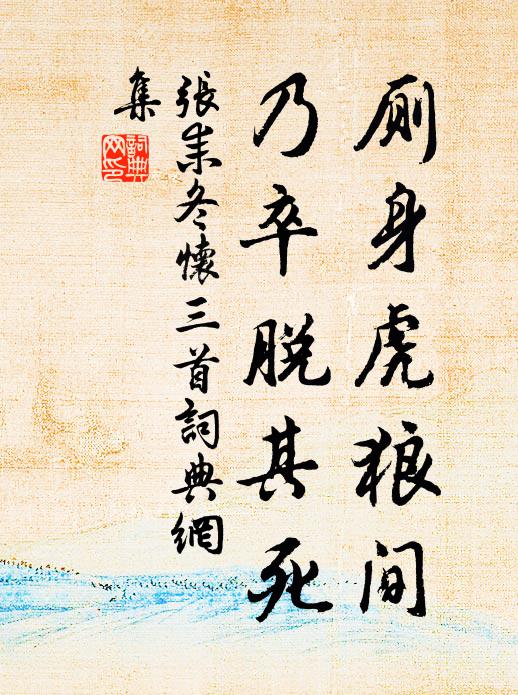 厠身虎狼间
乃卒脱其死
張耒冬懷三首詞典網
集
詞典网印